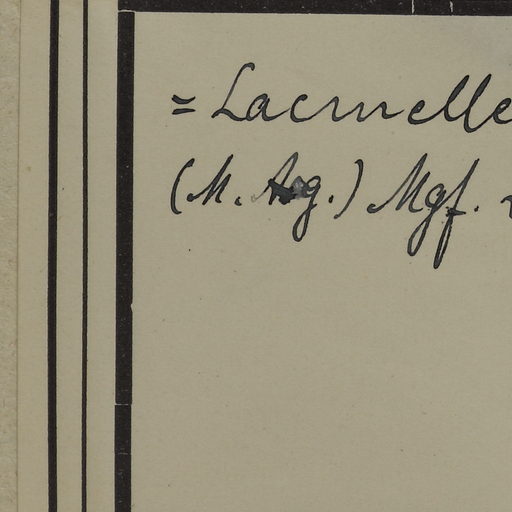 = Lacmelle
(M. Arg.) Mgf.